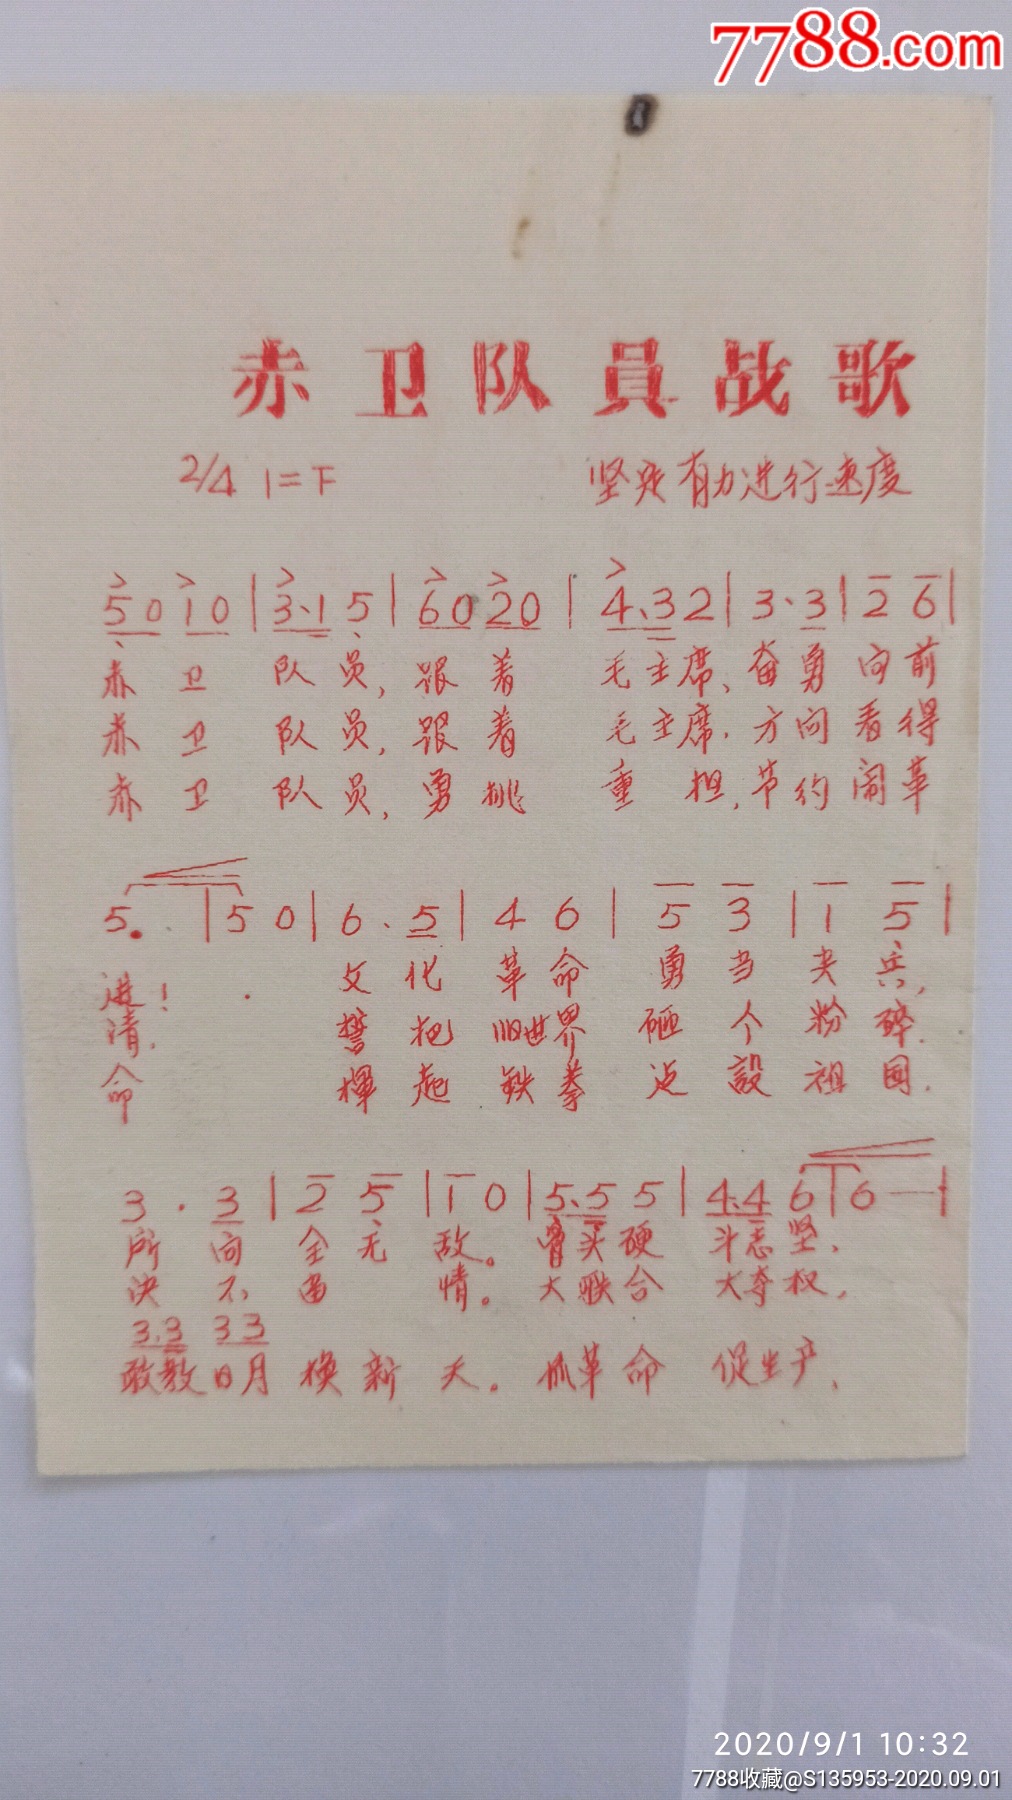 7788.com
赤卫队員战歌
2/4 1=F 坚定有力进行速度
5 0 1 0 | 3·1 5 | 6 0 2 0 | 4·3 2 | 3·3 | 2 6 |
赤卫队员,跟着毛主席、奋勇向前
赤卫队员,跟着毛主席.方向看得
赤卫队员,勇挑重担,节约闹革
5· | 5 0 | 6·5 | 4 6 | 5 3 | 1 5 |
进! 文化革命勇当尖兵,
清, 誓把旧世界砸个粉碎.
命 揮起铁拳 設祖国.
3·3 | 2 5 | 1 0 | 5·5 5 | 4·4 6 | 6 — |
所向全无敌。骨头硬斗志坚、
决不留情。大联合大夺权,
3·3 3 3
敢教日月换新天。抓革命促生产、
2020/9/1 10:32
7788收藏@S135953-2020.09.01